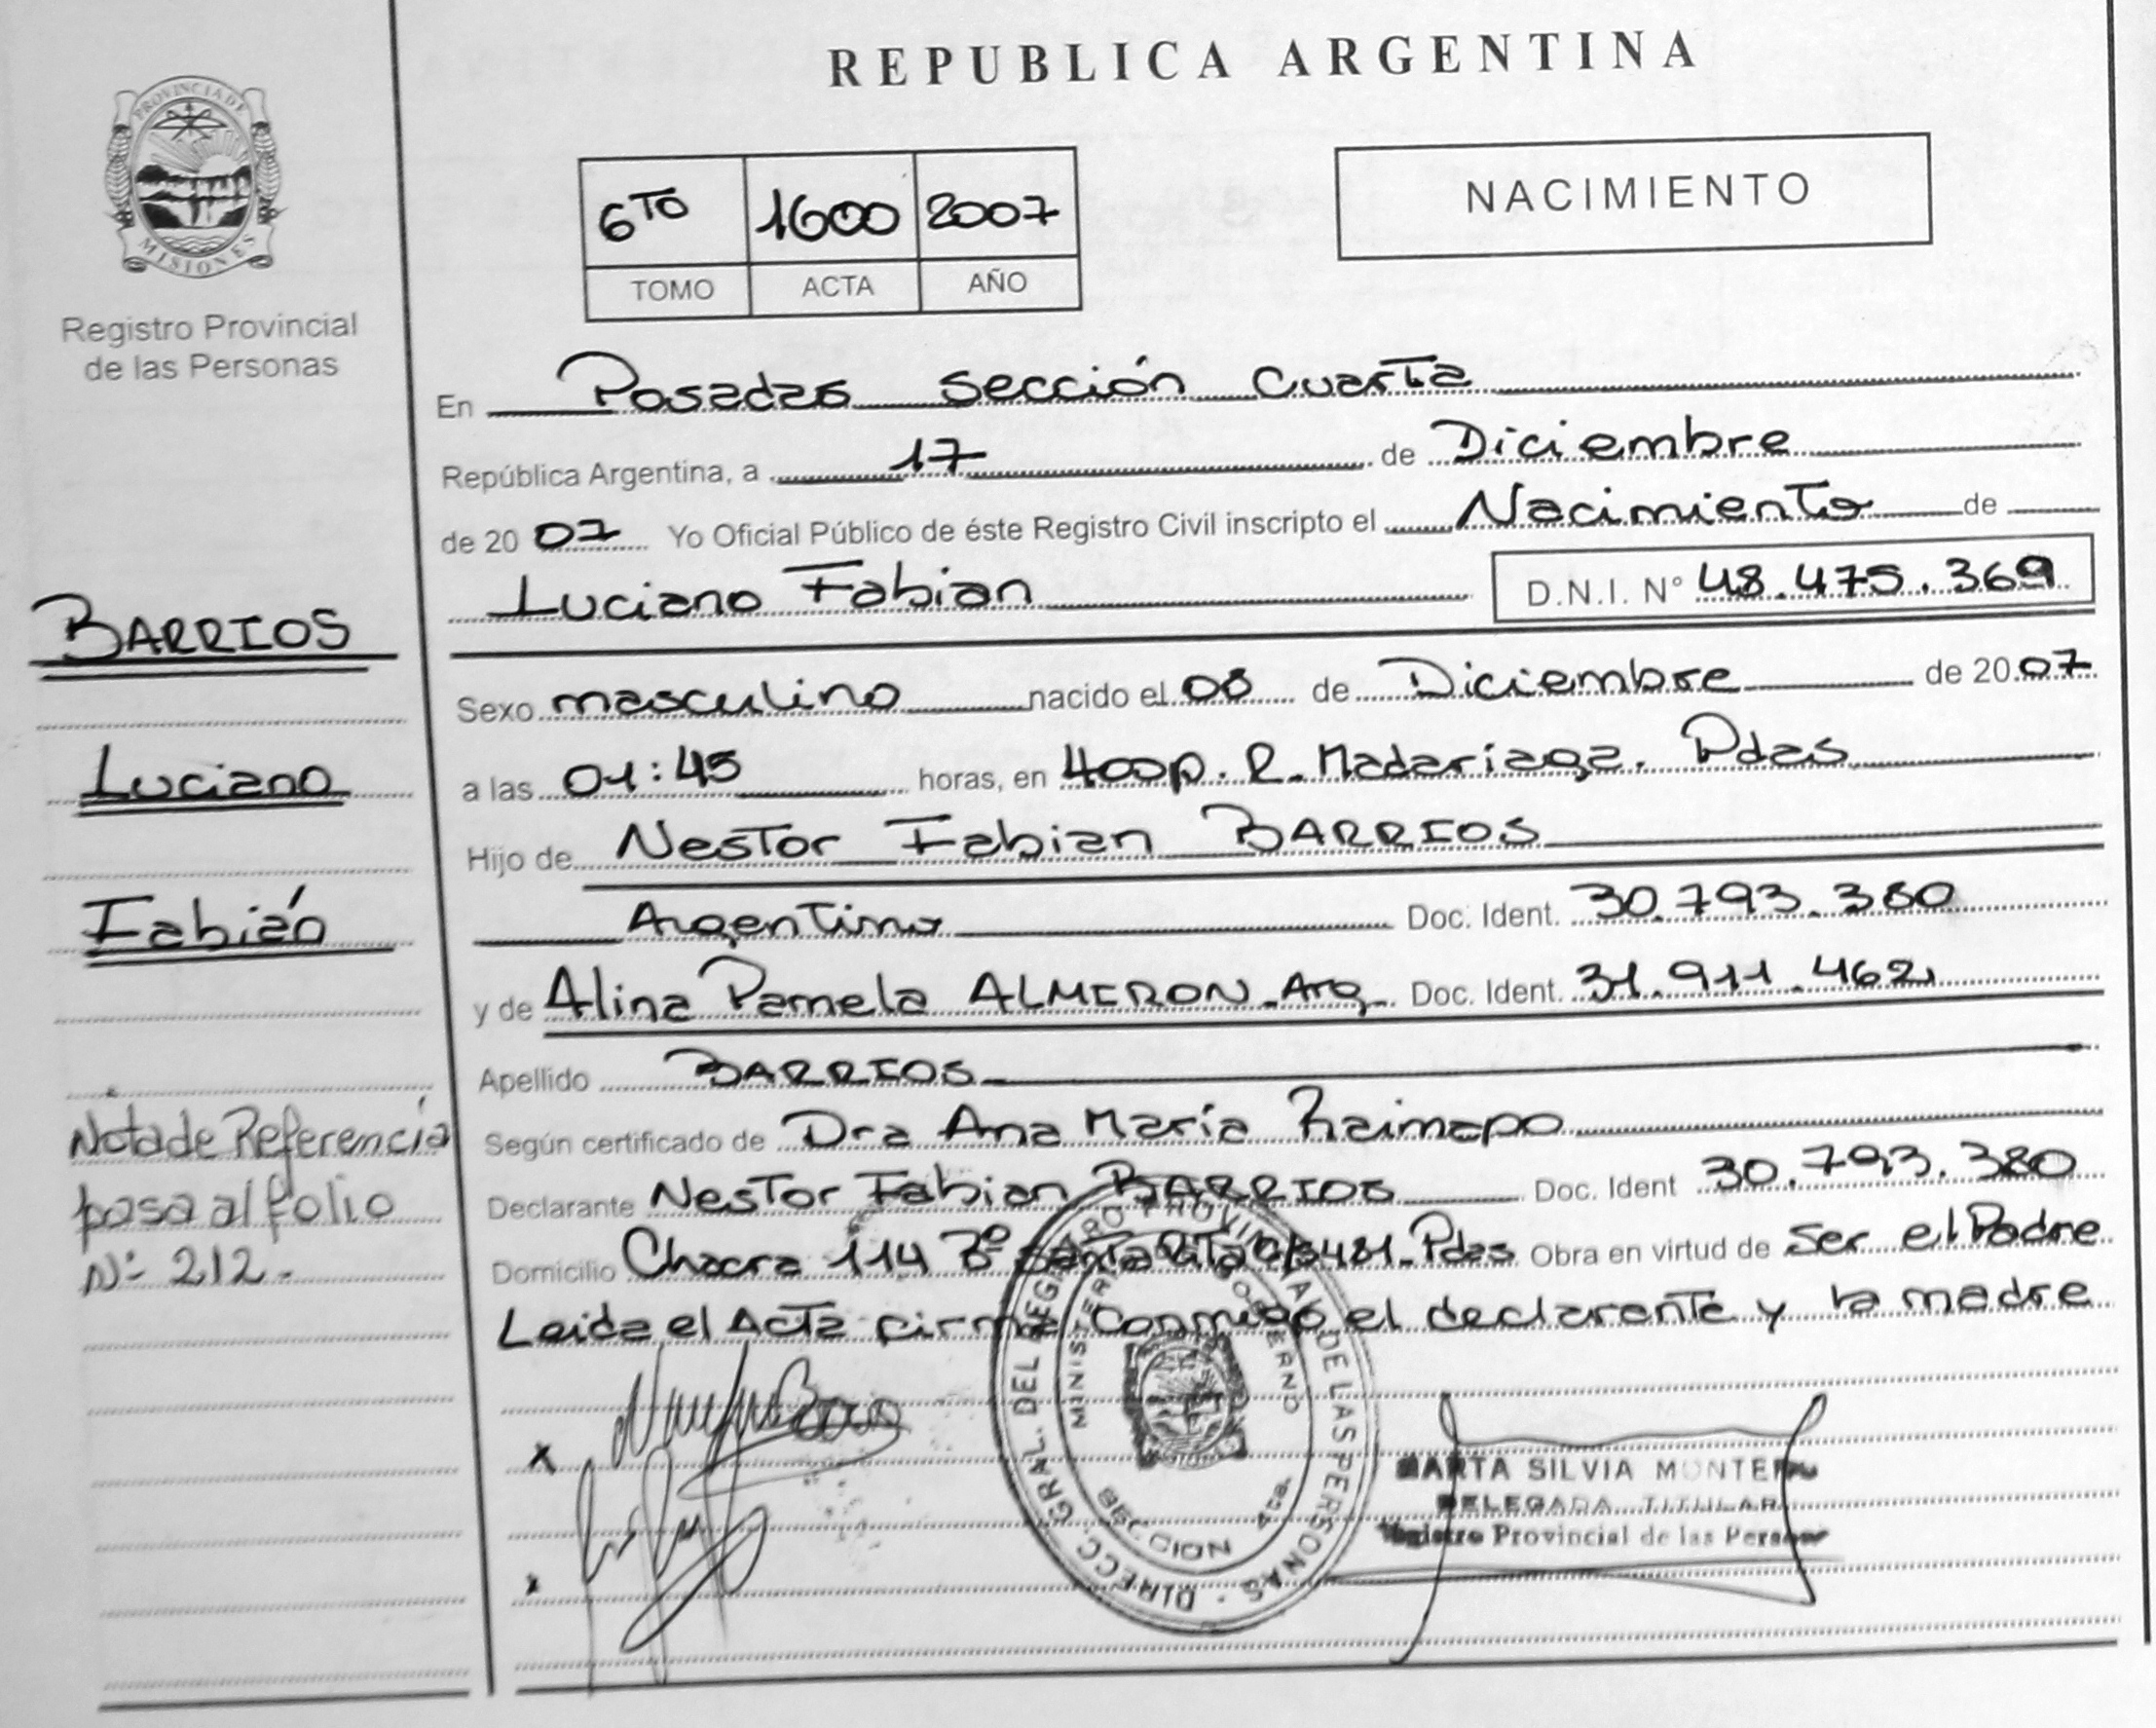 REPUBLICA ARGENTINA
PROVINCIA DE
MISIONES
Registro Provincial
de las Personas
6TO 1600 2007
TOMO ACTA AÑO
NACIMIENTO
En Posadas sección Cuarta
República Argentina, a 17 de Diciembre
de 2007 Yo Oficial Público de éste Registro Civil inscripto el Nacimiento de
Luciano Fabian D.N.I. N° 48.475.369
BARRIOS
Luciano
Fabián
Nota de Referencia
pasa al folio
N° 212.-
Sexo masculino nacido el 08 de Diciembre de 2007
a las 01:45 horas, en Hosp. R. Madariaga. Pdas
Hijo de Nestor Fabian BARRIOS
Argentino Doc. Ident. 30.793.380
y de Alina Pamela ALMIRON-Arg. Doc. Ident. 31.911.462
Apellido BARRIOS
Según certificado de Dra Ana María
Declarante Nestor Fabian BARRIOS Doc. Ident 30.793.380
Domicilio Chacra 114 Bº Santa Rita 3481-Pdas Obra en virtud de ser el Padre
Leida el Acta firma Conmigo el declarante y la madre
DIRECC. GRAL. DEL REGISTRO PROVINCIAL DE LAS PERSONAS
MINISTERIO GOBIERNO
SECCION 4ta.
MARTA SILVIA MONTERO
DELEGADA TITULAR
Registro Provincial de las Personas